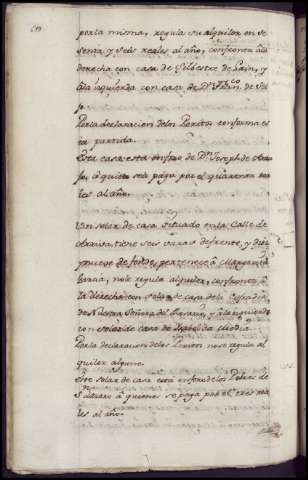 por la misma, regula su alquiler en se
senta y seis reales al año, confronta a la
derecha con casa de Silbestre de, y
a la izquierda con casa de Dn Franco de
Por la declaracion de los Peritos conforma es
ta partida.
Esta casa esta en foro de Dn Joseph de
, a quien se paga por el quarenta rea
les al año.
Un solar de casa situado en la Calle de
Arriva, tiene seis varas de frente, y diez
y nueve de fondo, perteneze a Margarita
Garcia, no le regula alquiler, confronta a
la derecha con solar de casa de la Cofradia
de Nuestra Señora del Rosario, y a la izquierda
con solar de casa de Ysabel de
Por la declaracion de los Peritos no se regula al
quiler alguno.
Este solar de casa esta en foro de los Padres de
a quienes se paga por el tres rea
les al año.